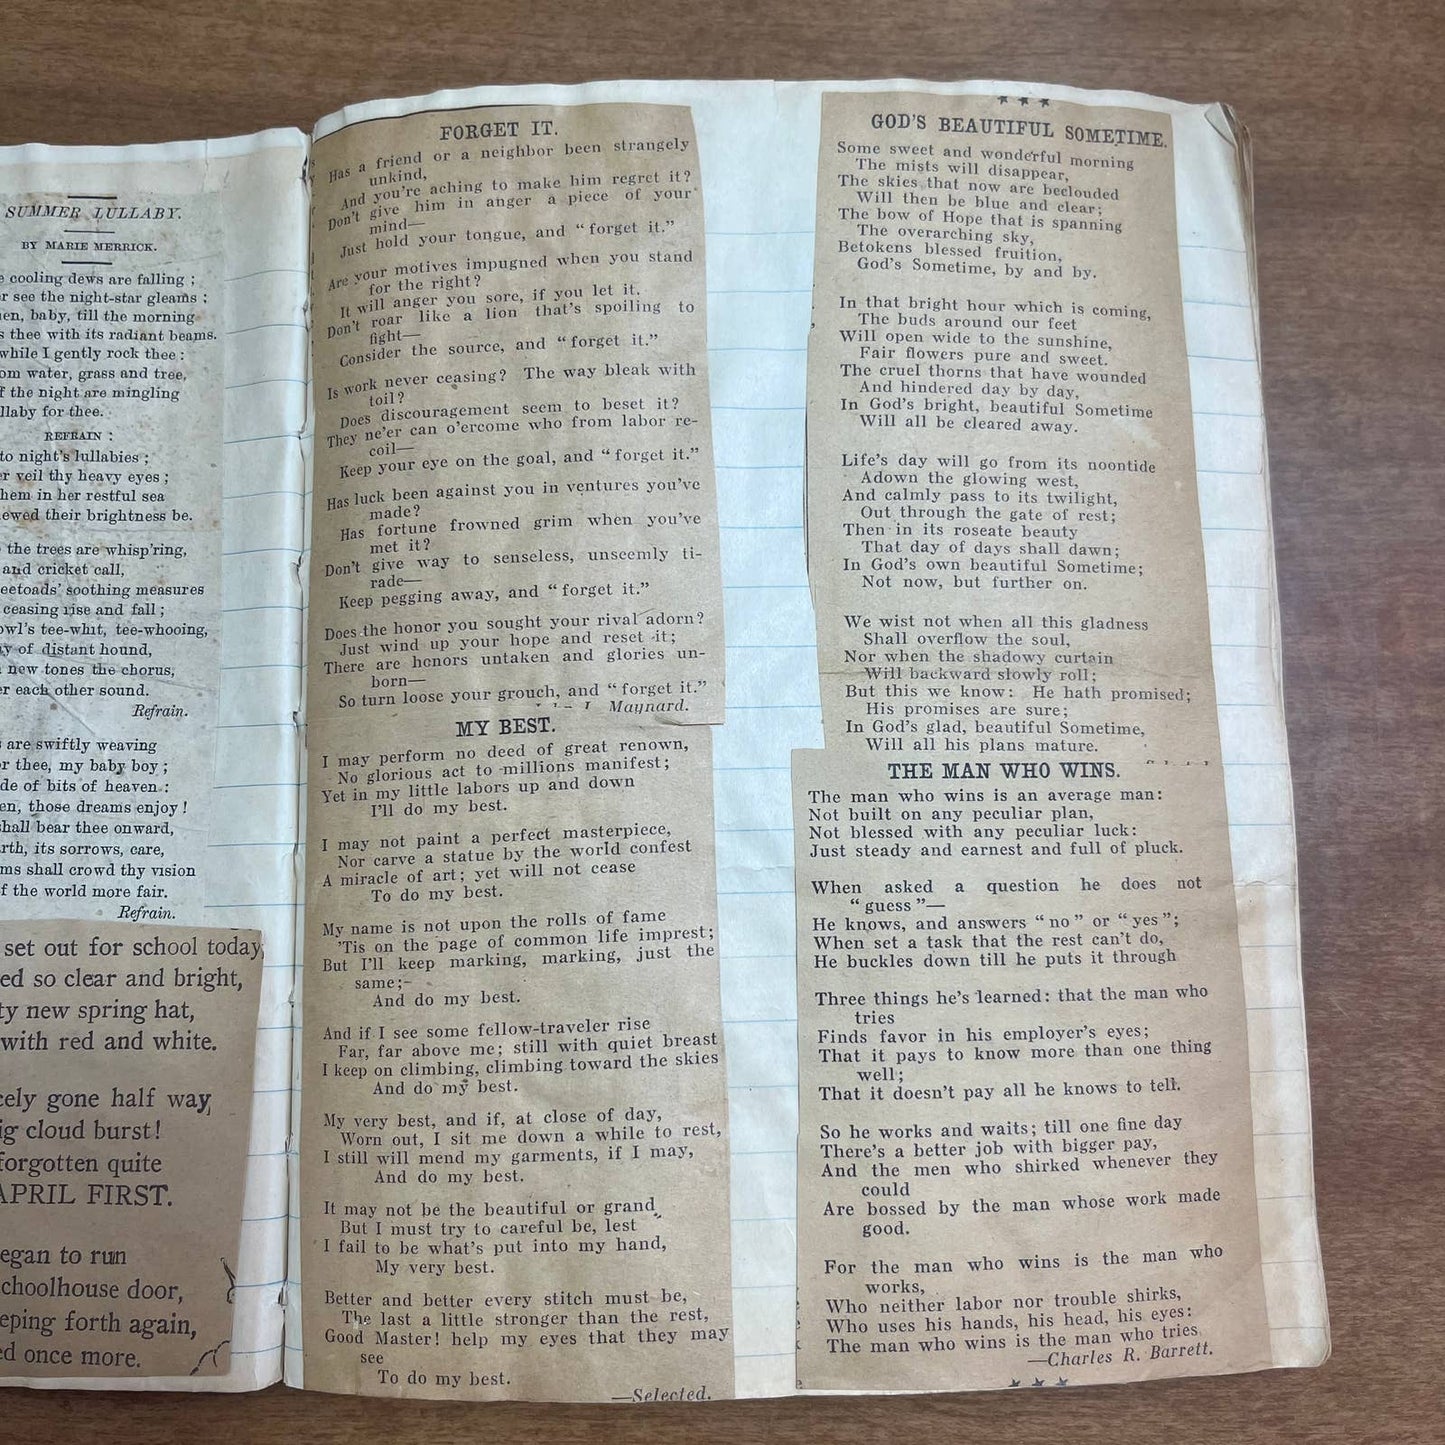 SUMMER LULLABY.
BY MARIE MERRICK.
cooling dews are falling ;
see the night-star gleams ;
baby, till the morning
thee with its radiant beams.
while I gently rock thee :
water, grass and tree,
the night are mingling
for thee.
REFRAIN :
to night's lullabies ;
veil thy heavy eyes ;
in her restful sea
their brightness be.
the trees are whisp'ring,
and cricket call,
soothing measures
ceasing rise and fall ;
tee-whit, tee-whooing,
of distant hound,
new tones the chorus,
each other sound.
Refrain.
are swiftly weaving
thee, my baby boy ;
of bits of heaven :
those dreams enjoy !
shall bear thee onward,
its sorrows, care,
shall crowd thy vision
the world more fair.
Refrain.
set out for school today,
so clear and bright,
new spring hat,
with red and white.
gone half way
cloud burst!
forgotten quite
APRIL FIRST.
to run
schoolhouse door,
forth again,
once more.
FORGET IT.
Has a friend or a neighbor been strangely
unkind,
And you're aching to make him regret it?
Don't give him in anger a piece of your
mind—
Just hold your tongue, and "forget it."
Are your motives impugned when you stand
for the right?
It will anger you sore, if you let it.
Don't roar like a lion that's spoiling to
fight—
Consider the source, and "forget it."
Is work never ceasing? The way bleak with
toil?
Does discouragement seem to beset it?
They ne'er can o'ercome who from labor re-
coil—
Keep your eye on the goal, and "forget it."
Has luck been against you in ventures you've
made?
Has fortune frowned grim when you've
met it?
Don't give way to senseless, unseemly ti-
rade—
Keep pegging away, and "forget it."
Does the honor you sought your rival adorn?
Just wind up your hope and reset it;
There are honors untaken and glories un-
born—
So turn loose your grouch, and "forget it."
Maynard.
MY BEST.
I may perform no deed of great renown,
No glorious act to millions manifest;
Yet in my little labors up and down
I'll do my best.
I may not paint a perfect masterpiece,
Nor carve a statue by the world confest
A miracle of art; yet will not cease
To do my best.
My name is not upon the rolls of fame
'Tis on the page of common life imprest;
But I'll keep marking, marking, just the
same;-
And do my best.
And if I see some fellow-traveler rise
Far, far above me; still with quiet breast
I keep on climbing, climbing toward the skies
And do my best.
My very best, and if, at close of day,
Worn out, I sit me down a while to rest,
I still will mend my garments, if I may,
And do my best.
It may not be the beautiful or grand,
But I must try to careful be, lest
I fail to be what's put into my hand,
My very best.
Better and better every stitch must be,
The last a little stronger than the rest,
Good Master! help my eyes that they may
see
To do my best.
—Selected.
★ ★ ★
GOD'S BEAUTIFUL SOMETIME.
Some sweet and wonderful morning
The mists will disappear,
The skies that now are beclouded
Will then be blue and clear;
The bow of Hope that is spanning
The overarching sky,
Betokens blessed fruition,
God's Sometime, by and by.
In that bright hour which is coming,
The buds around our feet
Will open wide to the sunshine,
Fair flowers pure and sweet.
The cruel thorns that have wounded
And hindered day by day,
In God's bright, beautiful Sometime
Will all be cleared away.
Life's day will go from its noontide
Adown the glowing west,
And calmly pass to its twilight,
Out through the gate of rest;
Then in its roseate beauty
That day of days shall dawn;
In God's own beautiful Sometime;
Not now, but further on.
We wist not when all this gladness
Shall overflow the soul,
Nor when the shadowy curtain
Will backward slowly roll;
But this we know: He hath promised;
His promises are sure;
In God's glad, beautiful Sometime,
Will all his plans mature.
THE MAN WHO WINS.
The man who wins is an average man:
Not built on any peculiar plan,
Not blessed with any peculiar luck:
Just steady and earnest and full of pluck.
When asked a question he does not
"guess"—
He knows, and answers "no" or "yes";
When set a task that the rest can't do,
He buckles down till he puts it through
Three things he's learned: that the man who
tries
Finds favor in his employer's eyes;
That it pays to know more than one thing
well;
That it doesn't pay all he knows to tell.
So he works and waits; till one fine day
There's a better job with bigger pay,
And the men who shirked whenever they
could
Are bossed by the man whose work made
good.
For the man who wins is the man who
works,
Who neither labor nor trouble shirks,
Who uses his hands, his head, his eyes:
The man who wins is the man who tries
—Charles R. Barrett.
★ ★ ★